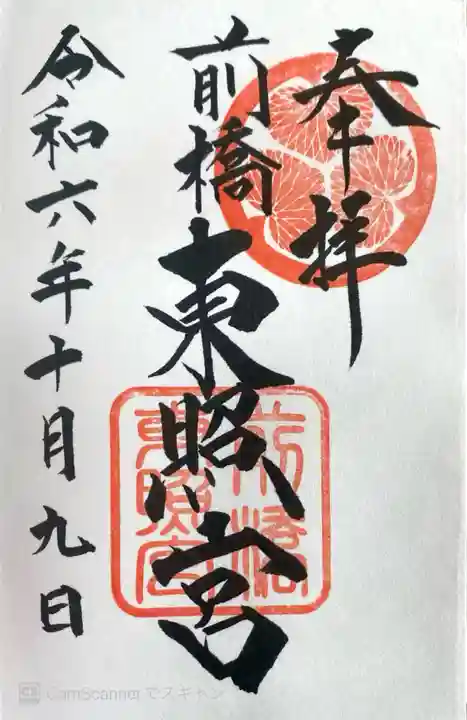 奉拝
前橋
東照宮
令和六年十月九日
前橋
東照宮
CS CamScanner でスキャン